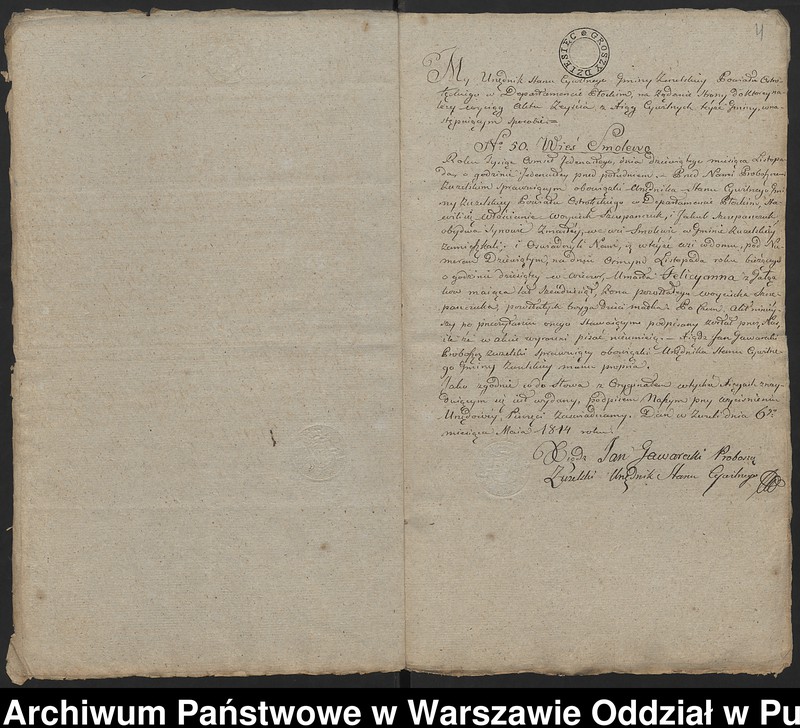 4
DZIESIĘC GROSZY
My Urzędnik Stanu Cywilnego Gminy Zuzelskiey Powiatu Ostro-
łęckiego w Departamencie Płockim, na żądanie Strony
wyciąg Aktu Zeyścia z Xiąg Cywilnych teyże Gminy, w na-
stępuiącym sposobie =
No. 50. Wieś Smolewo
Roku Tysiąc Ośmset Jedenastego, dnia dziewiątego miesiąca Listopa-
da, o godzinie Jedenastey przed południem. – Przed Nami Proboszczem
Zuzelskim Sprawuiącym obowiązki Urzędnika Stanu Cywilnego Gmi-
ny Zuzelskiey Powiatu Ostrołęckiego w Departamencie Płockim, Sta-
wili się Włościanie Woyciech Szczepanczuk, i Jakub Szczepanczuk
obydwa Synowie Zmarłey, we wsi Smolewie w Gminie Zuzelskiey
zamieszkali; i Oświadczyli Nam, iż w teyże wsi w domu, pod Nu-
merem Dziewiątym, na dniu Osmym Listopada roku bieżącego
o godzinie dziesiątey w wieczor, Umarła Felicyanna z
maiąca lat Sześćdziesiąt, Żona pozostałego Woyciecha Szcze-
panczuka, pozostałych troyga Dzieci matka. Po czem, Akt niniey-
szy po przeczytaniu onego Stawaiącym podpisany został przez Nas,
ile że w akcie wyrażeni pisać nieumieią. – Xiądz Jan Gawarecki
Proboszcz Zuzelski Sprawuiący obowiązki Urzędnika Stanu Cywilne-
go Gminy Zuzelskiey manu propria.
Jako zgodnie co do Słowa z Oryginałem w tychże Xięgach znay-
duiącym się iest wydany, Podpisem Naszym przy wyciśnieniu
Urzędowey Pieczęci zaświadczamy. Dan w Zuzeli dnia 6go
miesiąca Maia 1814 roku.
Xiądz Jan Gawarecki Proboszcz
Zuzelski Urzędnik Stanu Cywilnego
Archiwum Państwowe w Warszawie Oddział w Pu